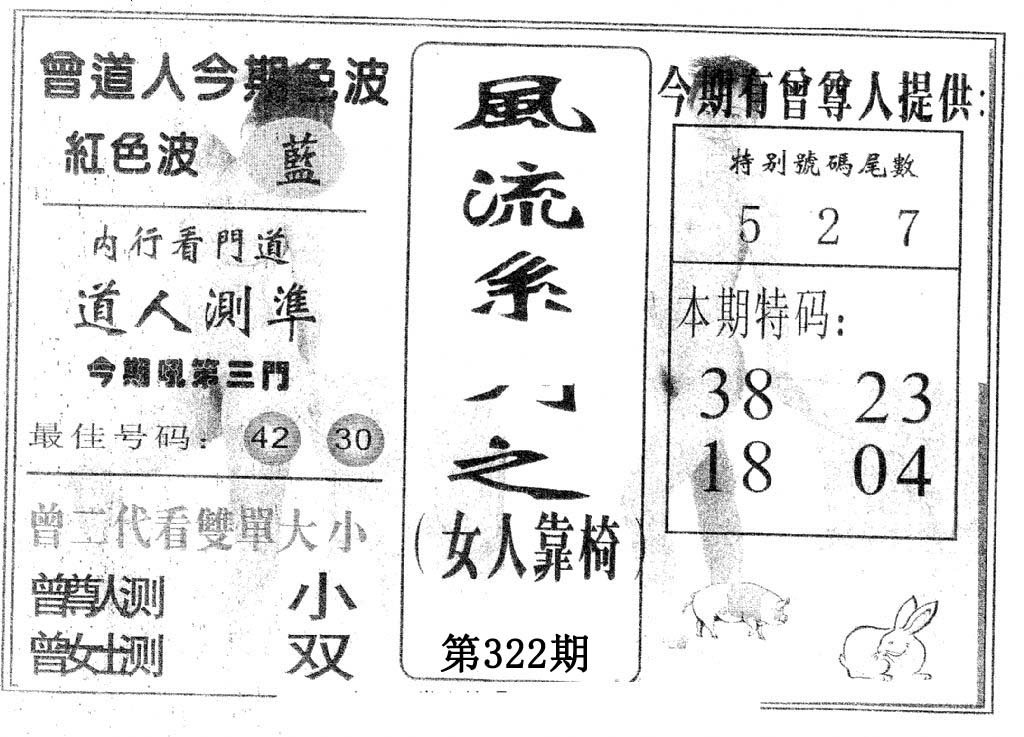 曾道人今期色波
紅色波 藍
内行看門道
道人測準
今期吼第三門
最佳号码： 42 30
曾二代看雙單大小
曾尊人测 小
曾女士测 双
風
流
系
之
(女人靠椅)
第322期
今期有曾尊人提供：
特别號碼尾數
5 2 7
本期特码：
38 23
18 04